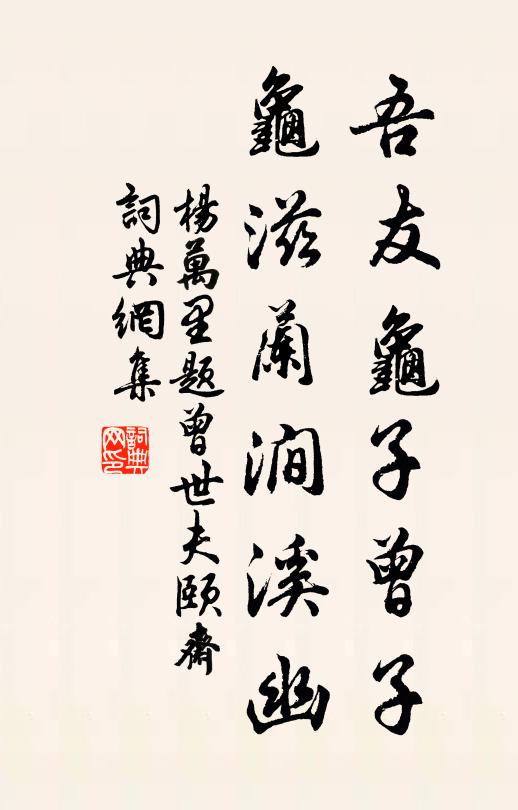 吾友龜子曾子
龜滋蘭澗溪幽
楊萬里題曾世夫頤齋
詞典網集
詞典
网印